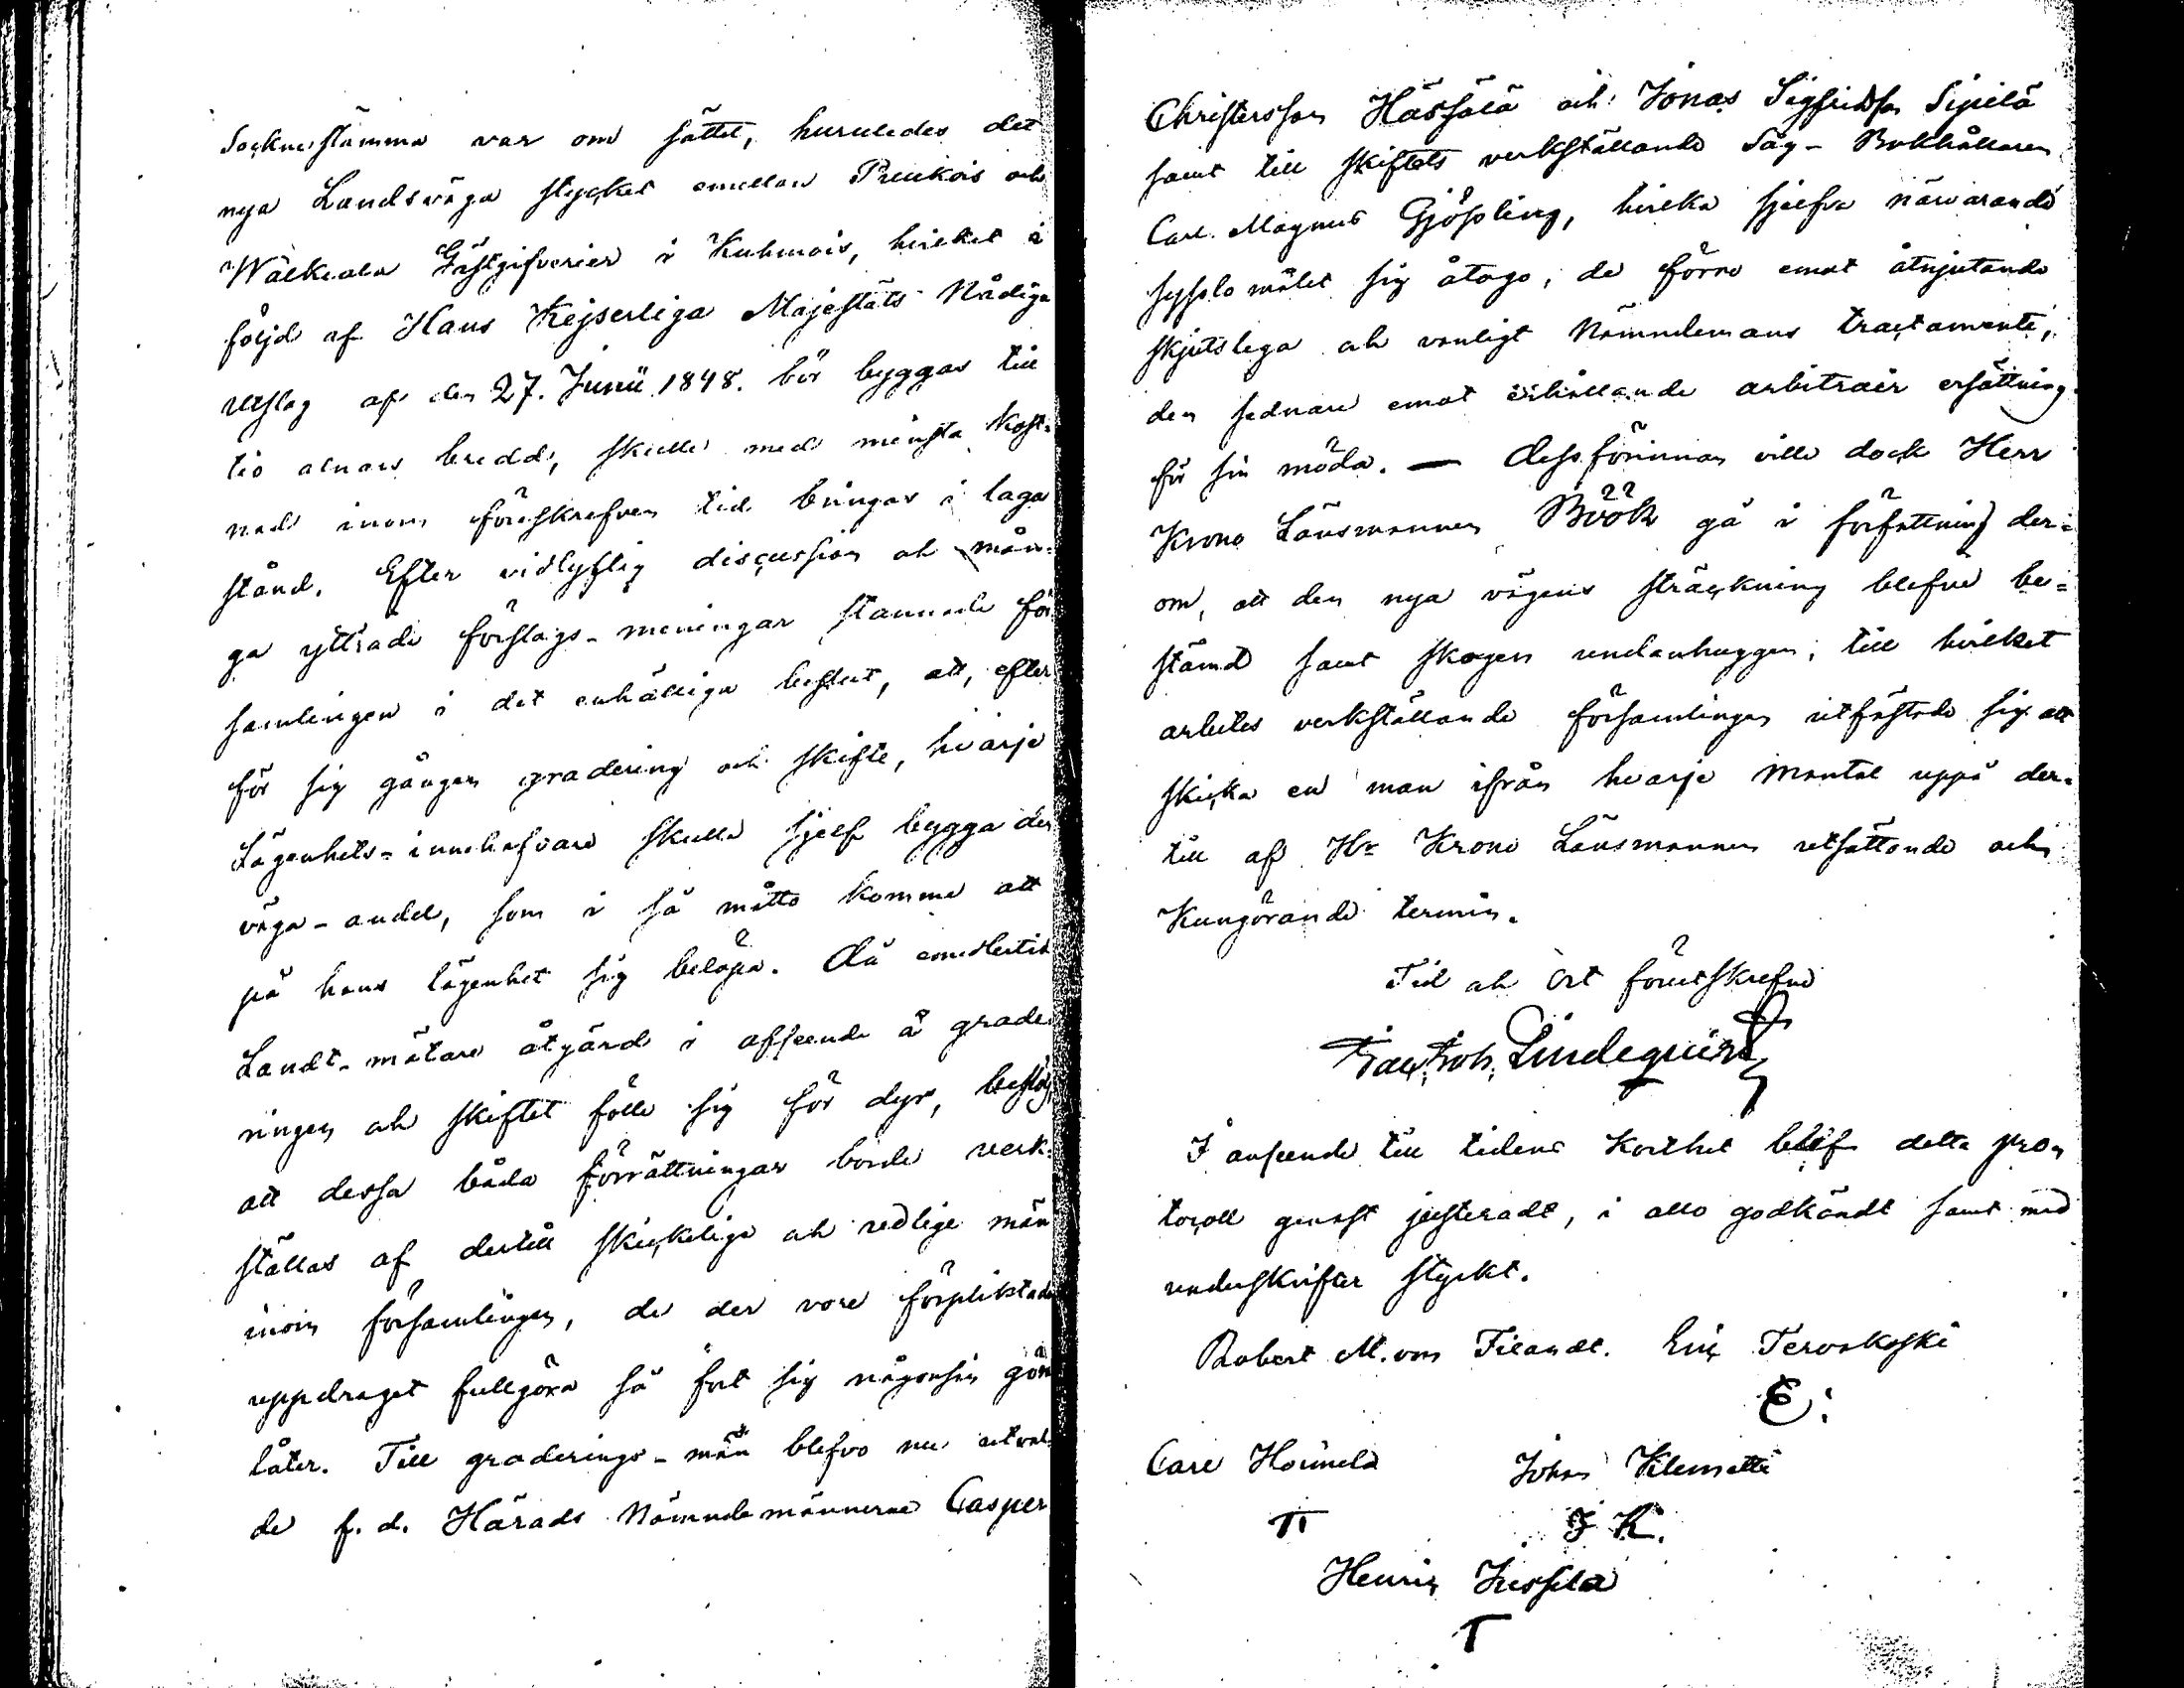 Sockne stämma var om sättet, huruledes det
nya Landsväga stycket emellan Puukois och
Wälkiala Gästgifverier i Kuhmois, hvilket i
följd af Hans Kejserliga Majestäts Nådiga
utslag af den 27. Junii 1848. bör byggas till
tio alnars bredd, skulle med minsta kost=
nad inom föreskrefven tid bringas i laga
stånd. Efter vidlyftig discussion och mån=
ga yttrade förslags-meningar stannade för
samlingen i det enhälliga beslut, att, efter
för sig gången gradering och skifte, hvarje
Lägenhets-innehafvare skulle sjelf bygga den
väga-andel, som i så måtto komme att
på hans lägenhet sig belöpa. Då emedlertid
Landt-mätare åtgärd i afseende å grade
ringen och skiftet fölle sig för dyr, beslöts
att dessa båda förrättningar borde verk=
ställas af dertill skickelige och redlige män
inom församlingen, de der vore förpliktade
uppdraget fullgöra så fort sig någonsin göra
låter. Till graderings-män blefvo nu utval
de f. d. Härads Nämndemännerne Casper
Christersson Hässälä och Jonas Sigfridsson Sipilä
samt till skiftets verkställande Såg-Bokhållaren
Carl Magnus Gjösling, hvilka sjelfva närvarande
sysslomålet sig åtogo, de förre emot åtnjutande
skjutslega och vanligt Nämndemans tractamente,
den sednare emot erhållande arbitrair ersättning
för sin möda. — Dessförinnan ville dock Herr
Krono Länsmannen Böök gå i författning der=
om, att den nya vägens sträckning blefve be=
stämd samt skogen undanhuggen; till hvilket
arbetes verkställande församlingen utfäste sig att
skicka en man ifrån hvarje Mantal uppå der=
till af Hr Krono Länsmannen utsättande och
Kungörande termin.
Tid och Ort förutskrefne
Joh. Lindequist
I anseende till tidens korthet blef detta pro
tocoll genast justeradt, i allo godkändt samt med
underskrifter styrkt.
Robert M. von Fieandt. Eric Tervakoski
E:
Carl Hoimela Johan Klemetti
TT J K.
Henric Jussila
T